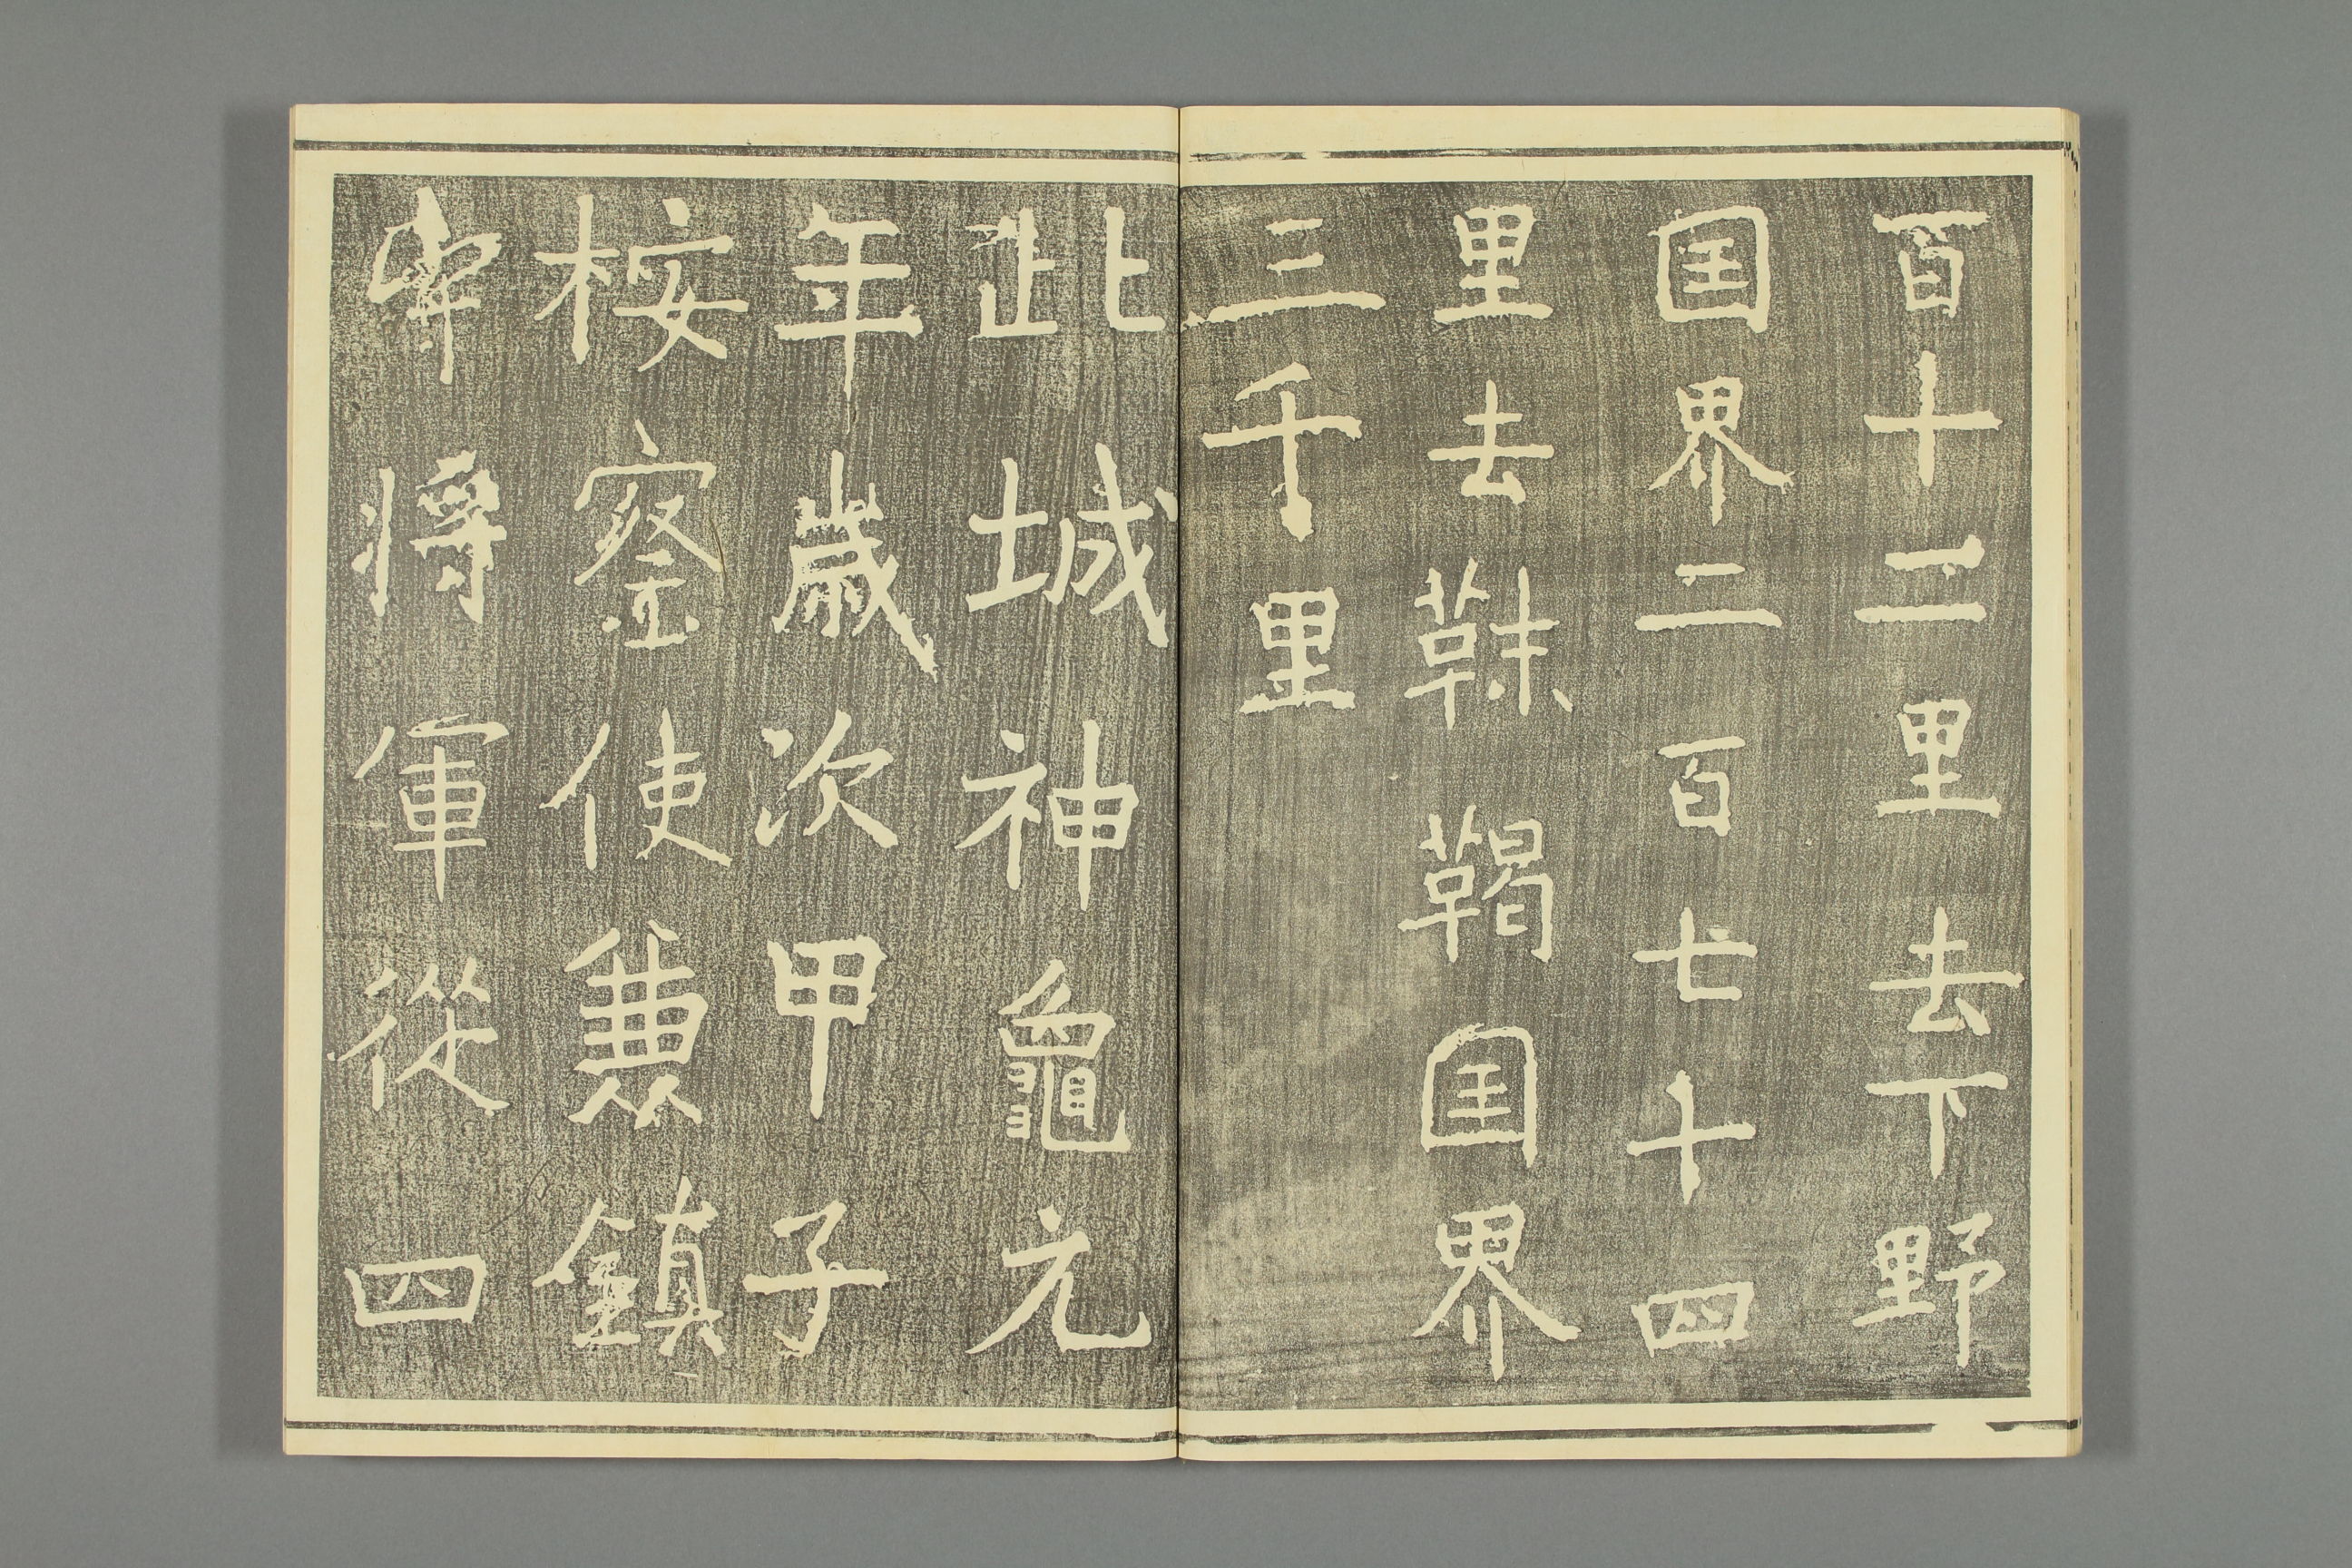 百十二里去下野
国界二百七十四
里去靺鞨国界
三千里
此城神龜元
年歳次甲子
桉察使兼鎮
守将軍從四